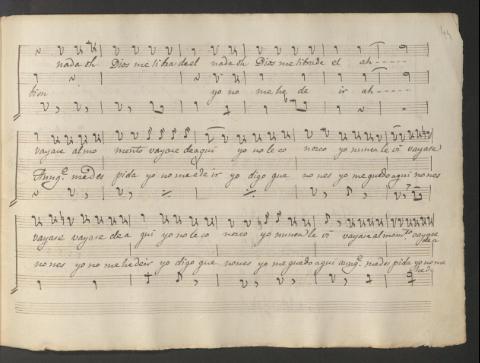 nada oh Dios me libra de el nada oh Dios me libra de el ah
bien yo no me he de ir ah
vayase al mo mento vayase de aqui yo no le co nozco yo nunca le vi vayase
Aunq.e me des pida yo no me he de ir yo digo que no nes yo me quedo aqui no nes
vayase vayase de a qui yo no le co nozco yo nunca le vi vayase al mom.to vayase de a
no nes yo no me he de ir yo digo que no nes yo me quedo aqui aunq.e me des pida yo no me he de